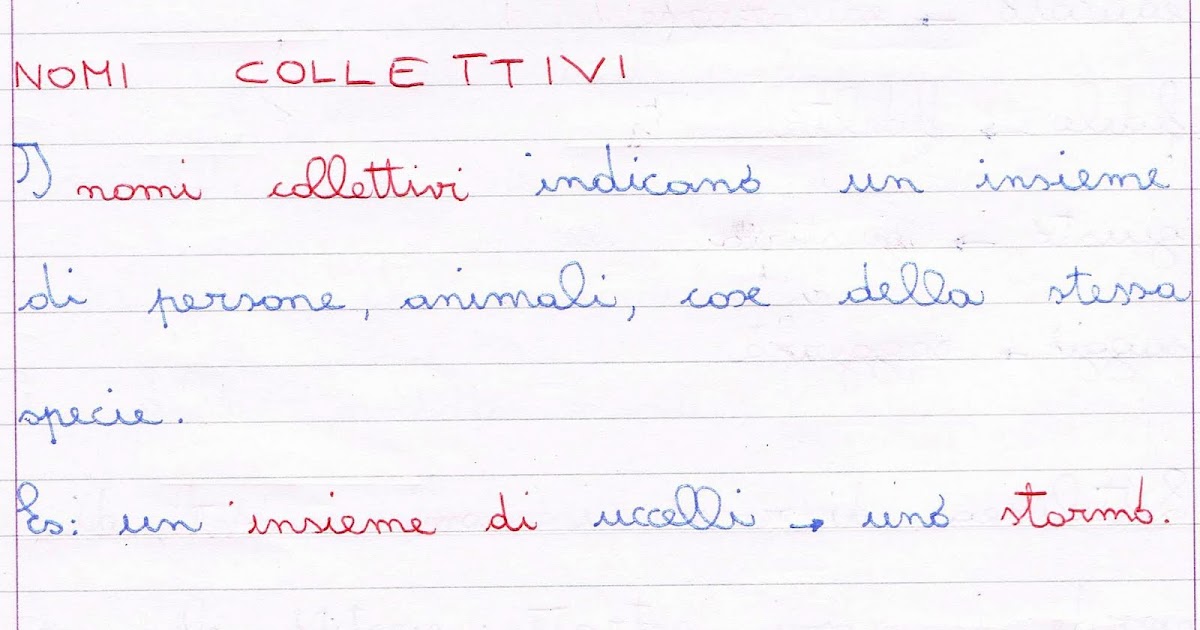 NOMI COLLETTIVI
I nomi collettivi indicano un insieme
di persone, animali, cose della stessa
specie.
Es: un insieme di uccelli → uno stormo.